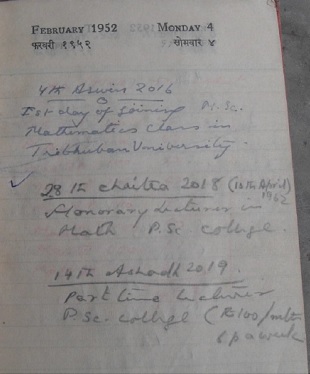 FEBRUARY 1952 MONDAY 4
फरवरी १९५२ सोमवार ४
4th Aswin 2016
Ist day of joining M.Sc.
Mathematics class in
Tribhuban University.
28 th Chaitra 2018 (10th April) 1962
Honorary Lecturer in
Math P.Sc college.
14th Ashadh 2019.
Part time Lecturer
P.Sc. college (Rs 100/mth
6 p a week